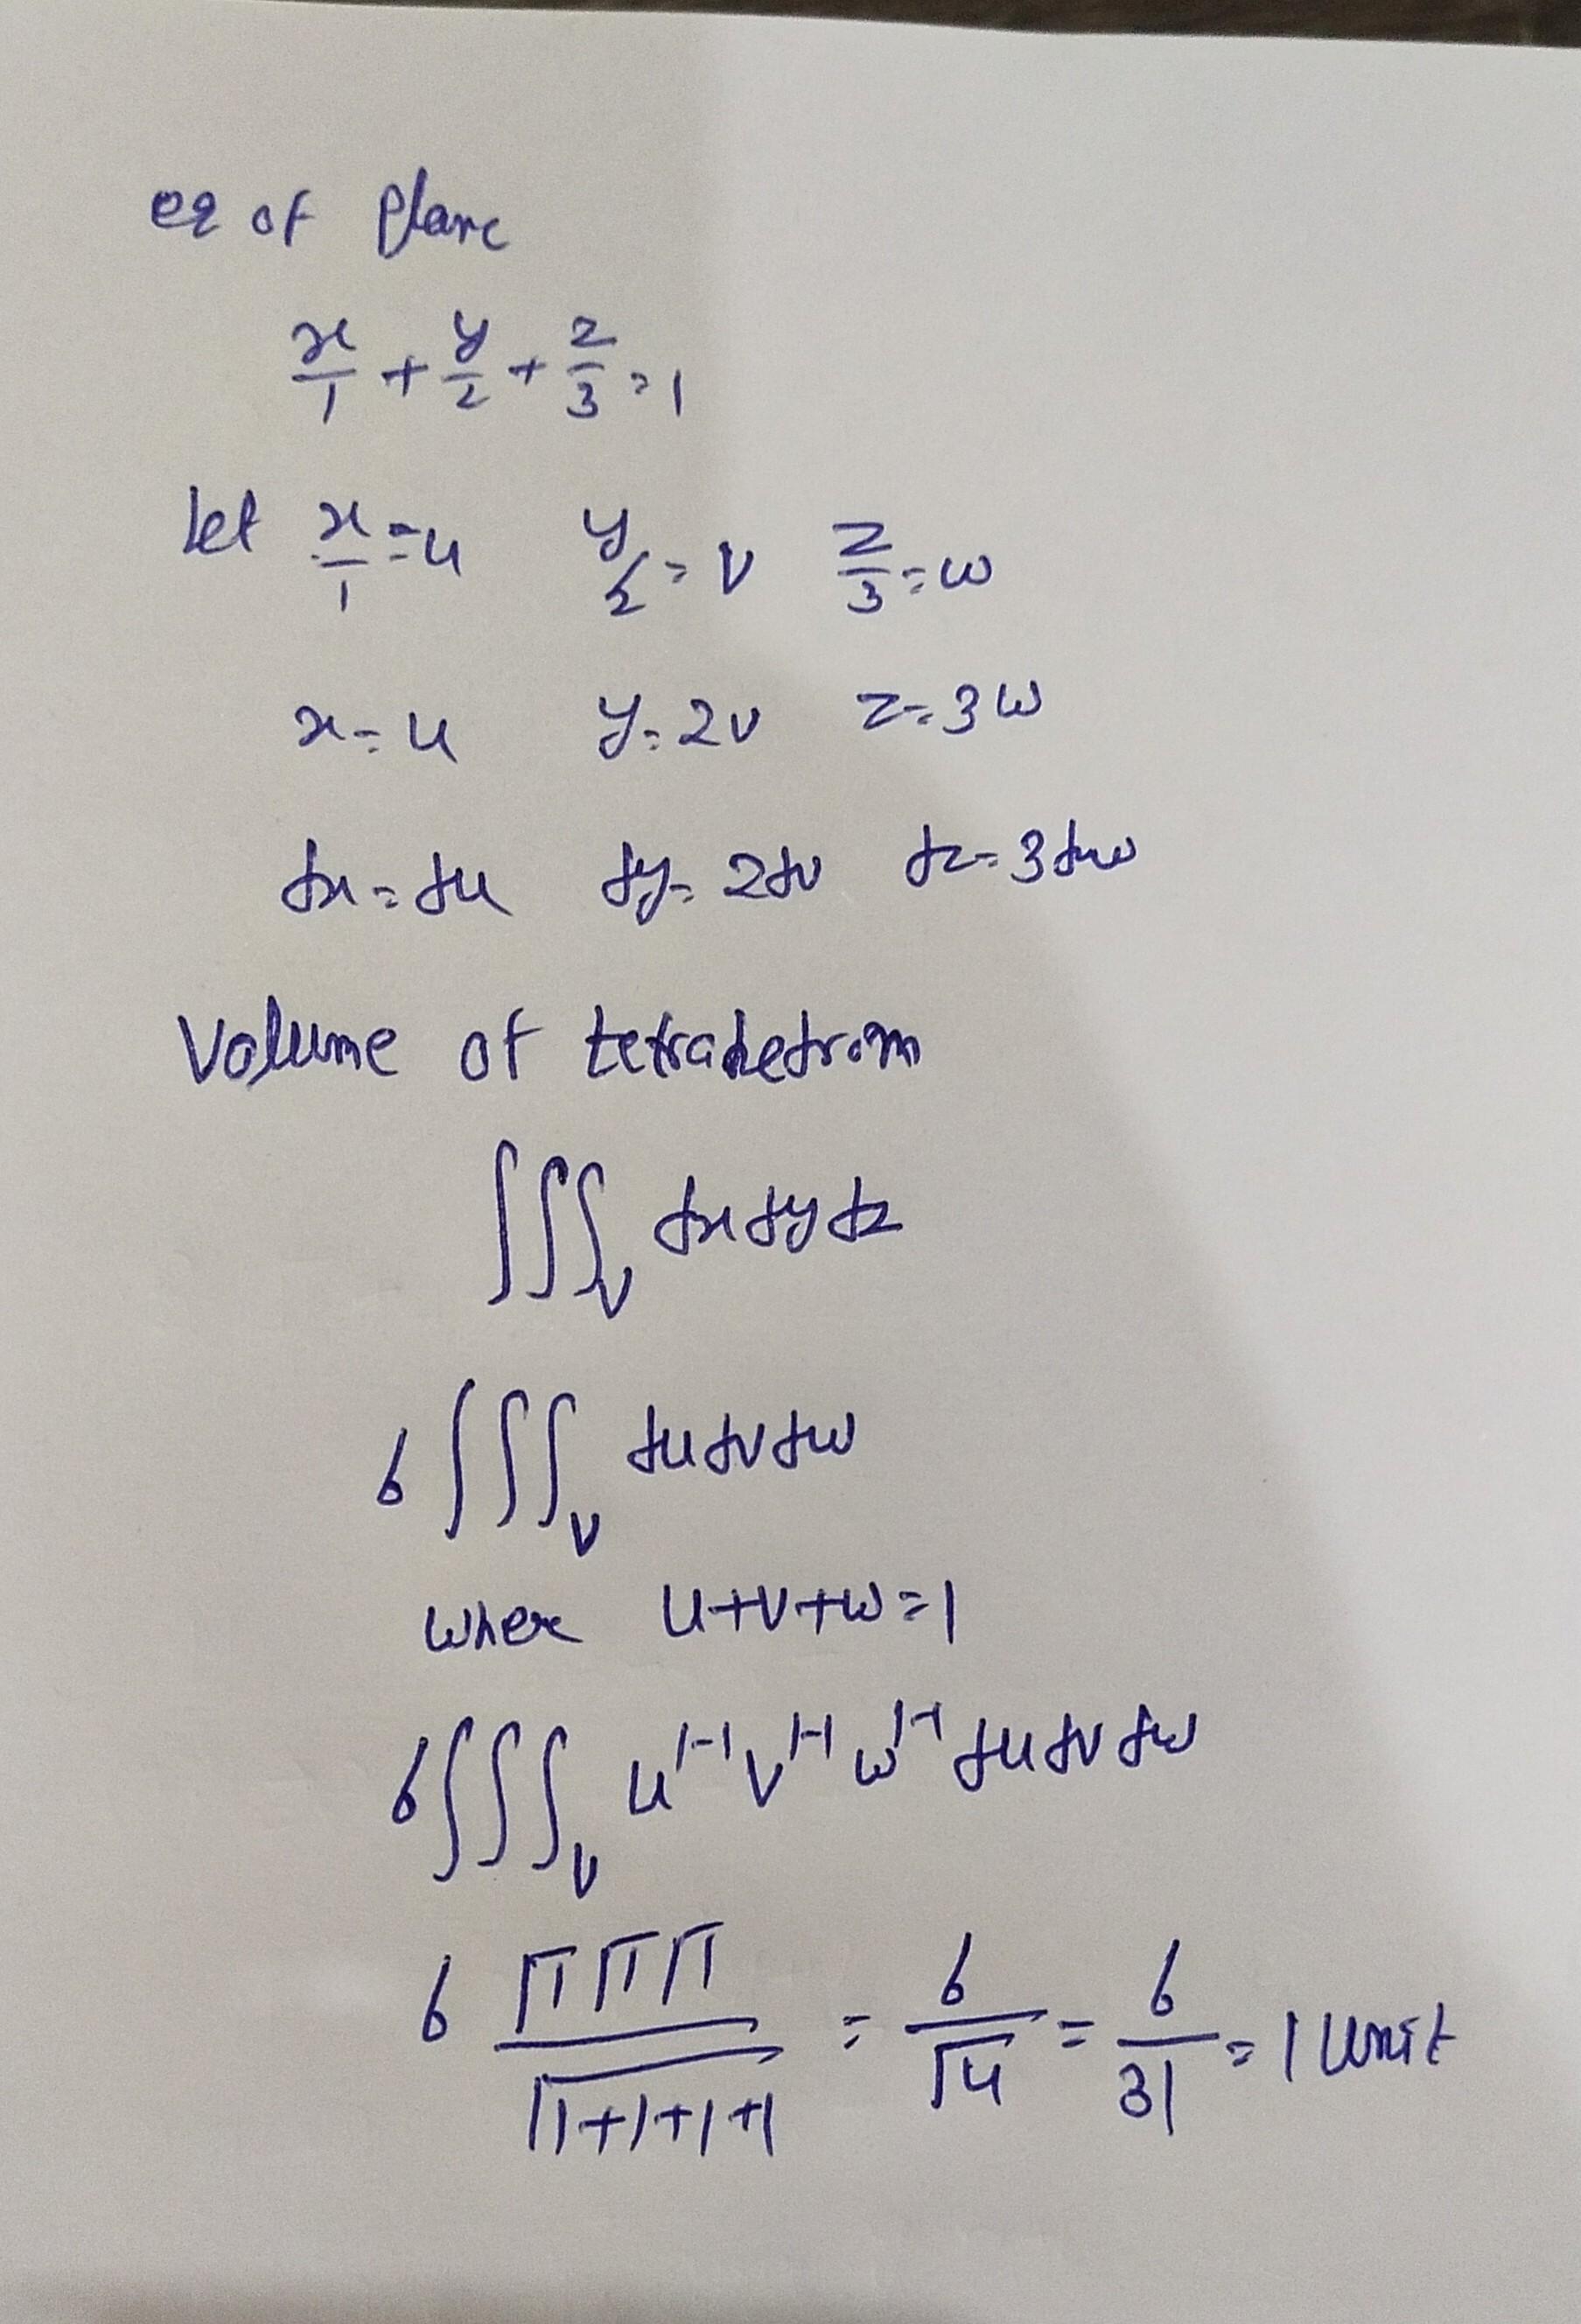 eq of plane
x/1 + y/2 + z/3 = 1
let x/1 = u y/2 = v z/3 = w
x = u y = 2v z = 3w
dx = du dy = 2dv dz = 3dw
Volume of tetrahedrom
∫∫∫_V dx dy dz
6 ∫∫∫_V du dv dw
where u+v+w=1
6 ∫∫∫_V u^{1-1} v^{1-1} w^{1-1} du dv dw
6 Γ1 Γ1 Γ1 / Γ1+1+1+1 = 6/Γ4 = 6/3! = 1 unit